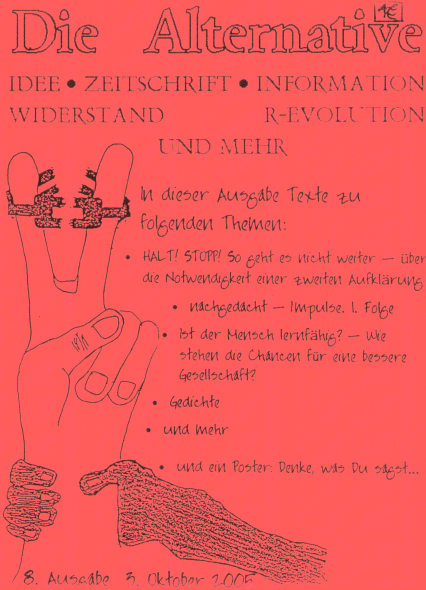 Die Alternative
1€
IDEE • ZEITSCHRIFT • INFORMATION
WIDERSTAND R-EVOLUTION
UND MEHR
In dieser Ausgabe Texte zu
folgenden Themen:
• HALT! STOPP! So geht es nicht weiter – über
die Notwendigkeit einer zweiten Aufklärung
• nachgedacht – Impulse. 1. Folge
• Ist der Mensch lernfähig? – Wie
stehen die Chancen für eine bessere
Gesellschaft?
• Gedichte
• und mehr
• und ein Poster: Denke, was Du sagst...
8. Ausgabe 3. Oktober